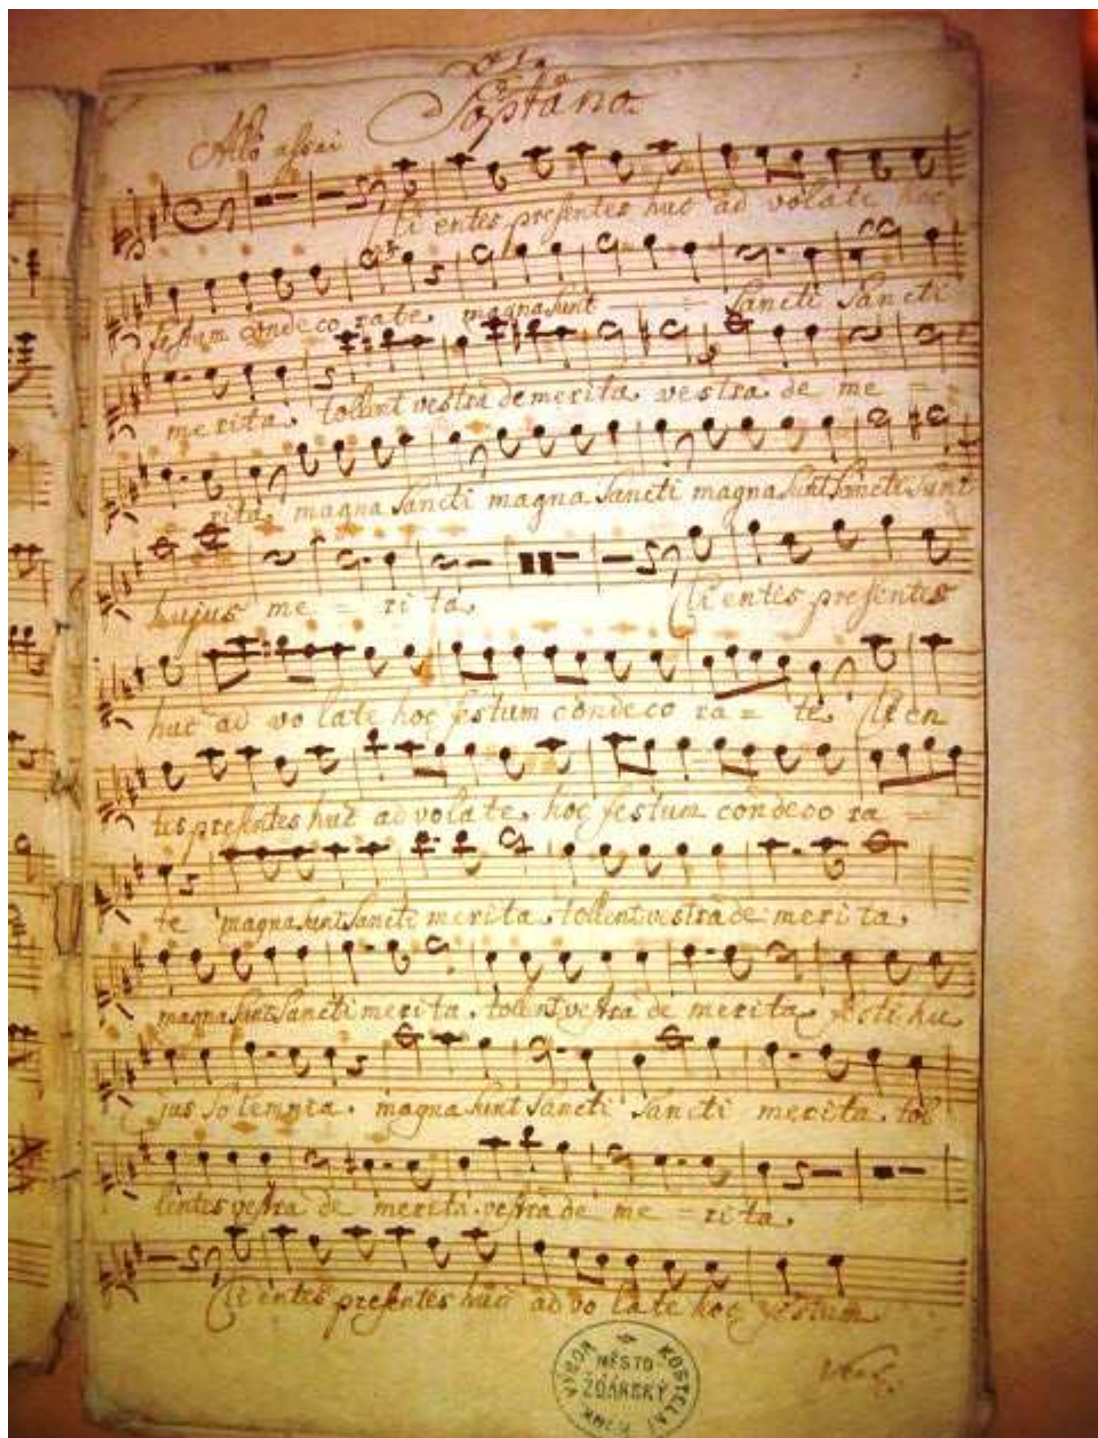 Soprano
Allo assai
Clientes presentes huc ad volate hoc
festum condeco rate. magna sunt Sancti Sancti
merita. tolent vestra demerita. vestra de me =
rita. magna Sancti magna Sancti magna sunt Sancti sunt
hujus me = ri ta. Clientes presentes
huc ad vo late hoc festum condeco ra = te. Clien
tes presentes huc ad volate. hoc festum condeco ra =
te magna sunt Sancti merita. tollent vestra de meri ta.
magna sunt Sancti merita. tolent vestra de merita hu
jus Solemnia. magna sunt Sancti Sancti merita. tol
lentes vestra de merita. vestra de me = ri ta.
Clientes presentes huc ad vo late hoc festum
MĚSTO
ŽĎÁRSKÝ
VÝBOR KOSTELNÍ